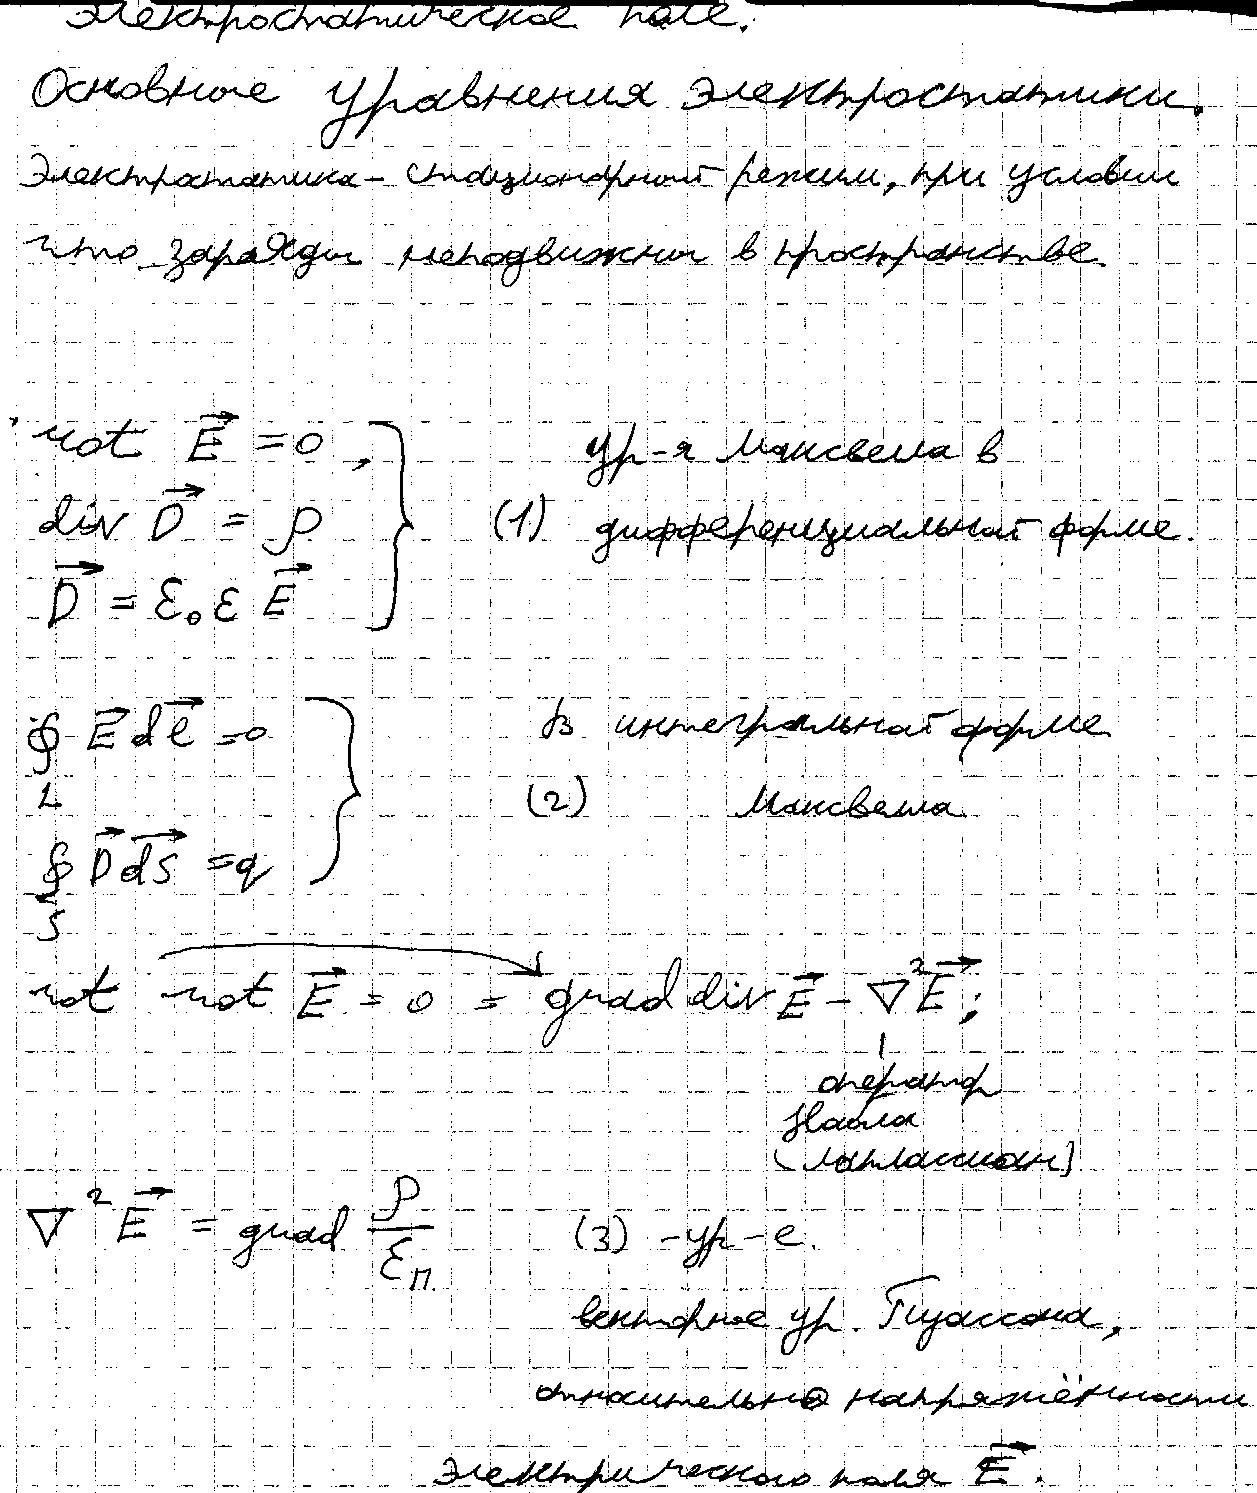 Электростатическое поле.
Основные уравнения электростатики.
Электростатика – стационарный режим, при условии
что заряды неподвижны в пространстве.
rot E⃗ = 0,
ур-я Максвела в
div D⃗ = ρ
(1) дифференциальной форме.
D⃗ = ε₀ε E⃗
∮ E⃗ dl⃗ = 0
L
В интегральной форме
(2) Максвелла
∮ D⃗ dS⃗ = q
S
rot rot E⃗ = 0 = grad div E⃗ – ∇²E⃗;
оператор
Набла
(лапласиан)
∇²E⃗ = grad ρ/εп (3) – ур-е.
векторное ур. Пуассона,
относительно напряжённости
электрического поля E⃗.